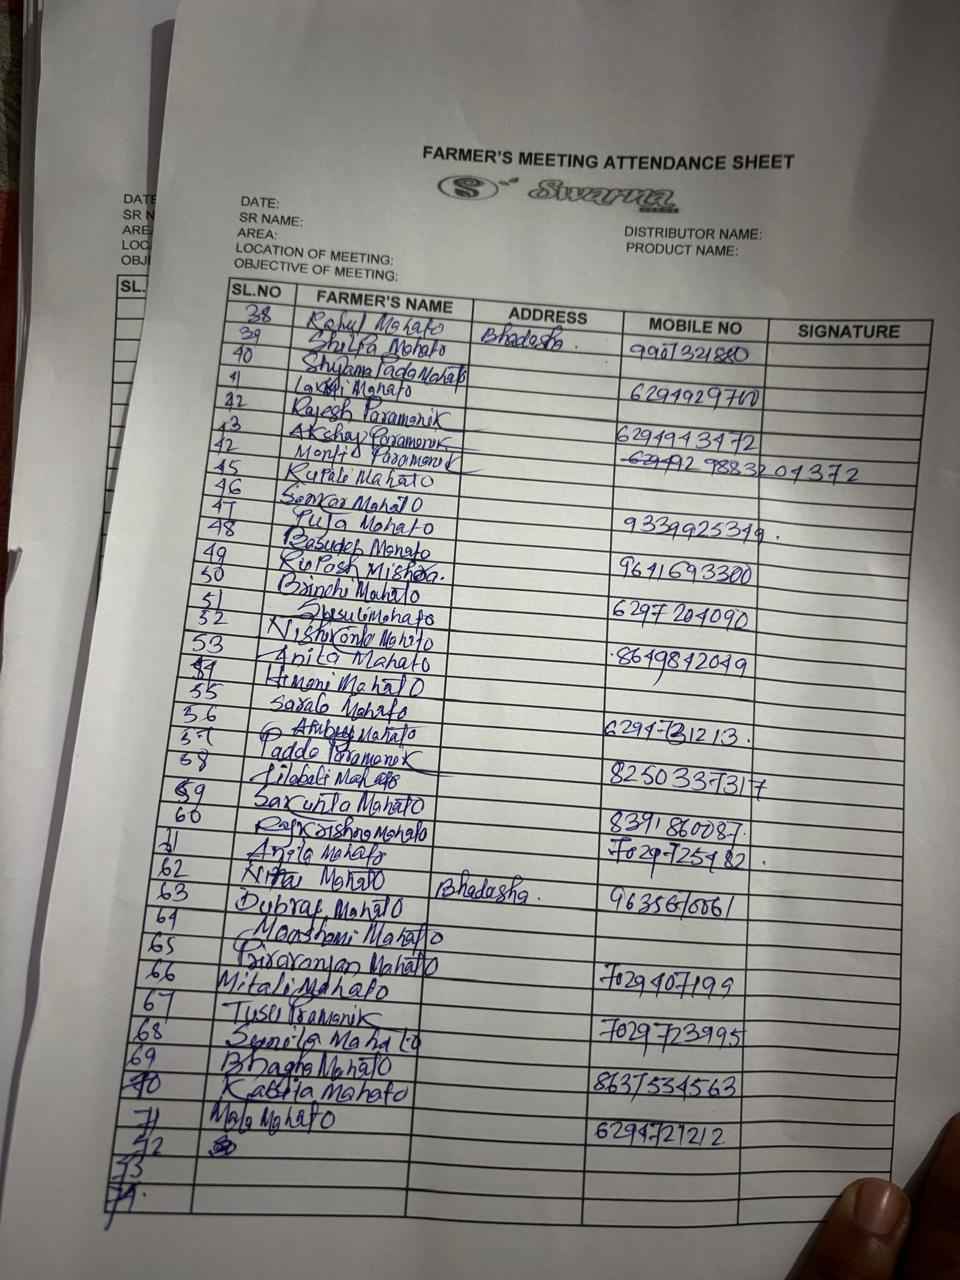 FARMER'S MEETING ATTENDANCE SHEET
S Swarna
DATE:
SR NAME:
AREA:
LOCATION OF MEETING:
OBJECTIVE OF MEETING:
DISTRIBUTOR NAME:
PRODUCT NAME:
SL.NO FARMER'S NAME ADDRESS MOBILE NO SIGNATURE
38 Rahul Mahato Bhadasha.
39 Shilpa Mahato
40 Shyama Pada Mahato
41 Mahato 6294929700
42 Rajesh Paramanik
43 Akshay Paramanik 6294943472
42 Paramanik 9883204372
45 Rupali Mahato
46 Sankar Mahato
47 Puja Mahato 9339925349.
48 Basudeb Mahato
49 Rupash Mishra. 9641693300
50 Brinchi Mahato
51 Mahato 6297204090
52 Mahato
53 Anita Mahato 8649842049
54 Himani Mahato
55 Sarala Mahato
56 Mahato 6294731213.
57 Padda Paramanik
58 Lilabali Mahato 8250337317
59 Sakunla Mahato
60 Rajkrishna Mahato 8391860087.
61 Anita Mahato 7029725482.
62 Nitai Mahato Bhadasha.
63 Dubraj Mahato
64 Mahato
65 Mahato
66 Mitali Mahato 7029407199
67 Tusu Pramanik
68 Sumila Mahato 7029723995
69 Bhagha Mahato
70 Kabita Mahato 8637534563
71 Mala Mahato
72 6294721212
73
74.
DATE
SR N
ARE
LOC
OBJ
SL.